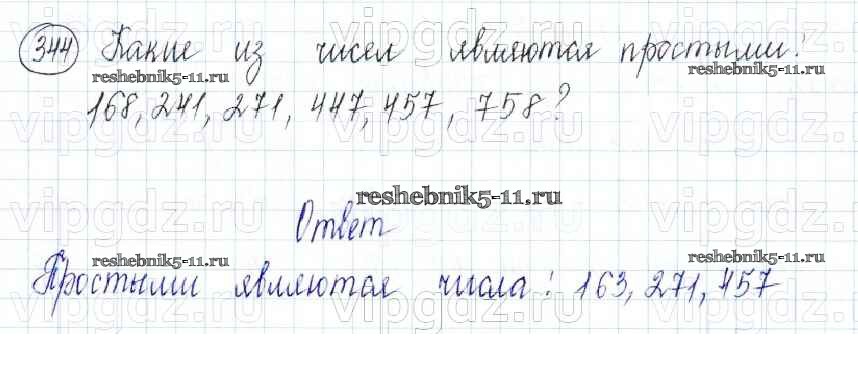 344 Какие из чисел являются простыми:
reshebnik5-11.ru reshebnik5-11.ru
168, 241, 271, 447, 457, 758?
reshebnik5-11.ru
Ответ
reshebnik5-11.ru
Простыми являются числа: 163, 271, 457
vipgdz.ru vipgdz.ru vipgdz.ru